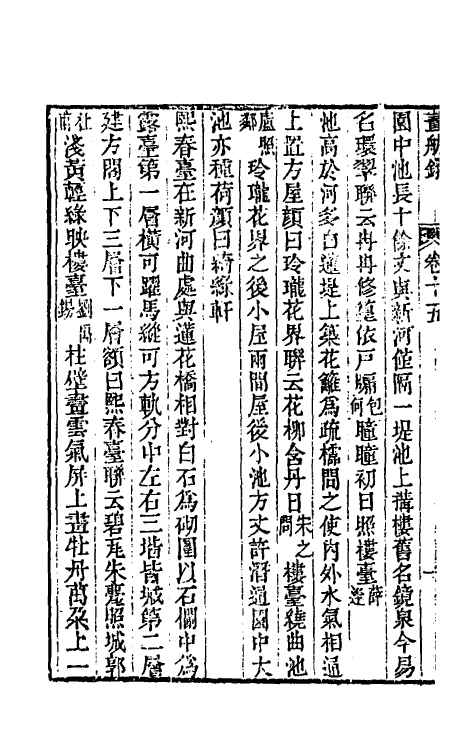 畫舫錄 卷十五 一
園中池長十餘丈與新河僅隔一堤池上搆樓舊名鏡泉今易
名環翠聯云冉冉修篁依戶牖包何曈曈初日照樓臺薛逢
池高於河多白蓮堤上築花籬爲疏櫺間之使內外水氣相通
上置方屋顏曰玲瓏花界聯云花柳含丹日朱之問樓臺繞曲池
盧照鄰玲瓏花界之後小屋兩間屋後小池方丈許潛通園中大
池亦種荷顏曰綺綠軒
熙春臺在新河曲處與蓮花橋相對白石爲砌圍以石欄中爲
露臺第一層橫可躍馬縱可方軌分中左右三堦皆城第二層
建方閣上下三層下一層額曰熙春臺聯云碧瓦朱甍照城郭
杜甫淺黃輕綠映樓臺劉禹錫柱壁畫雲氣屏上畫牡丹萬朶上一